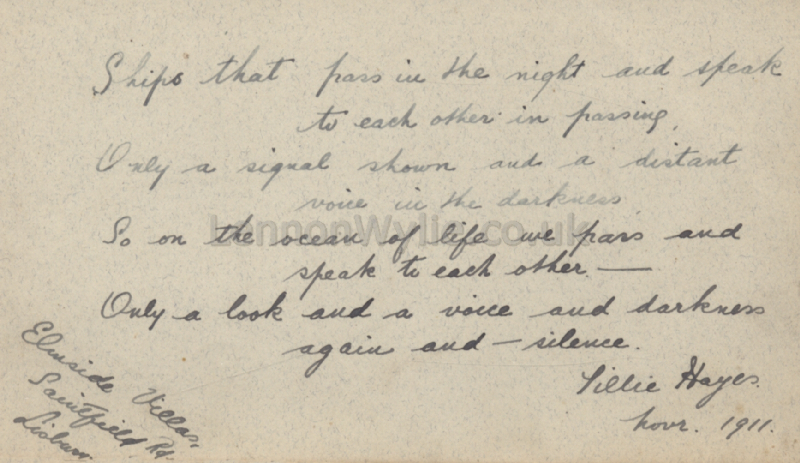 Ships that pass in the night and speak
to each other in passing,
Only a signal shown and a distant
voice in the darkness
So on the ocean of life we pass and
speak to each other. —
Only a look and a voice and darkness
again and — silence.
Lillie Hayes.
Novr. 1911.
Elmside Villas,
Saintfield Rd.
Lisburn.
LennonWylie.co.uk